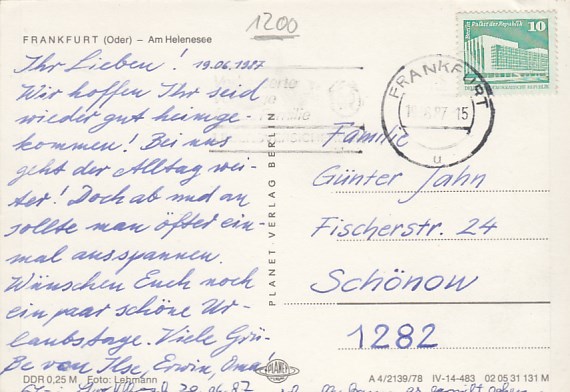 1200
FRANKFURT (Oder) – Am Helenesee
Ihr Lieben! 19.06.1987
Wir hoffen Ihr seid
wieder gut heimge-
kommen! Bei uns
geht der Alltag wei-
ter! Doch ab und an
sollte man öfter ein-
mal ausspannen.
Wünschen Euch noch
ein paar schöne Ur-
laubstage. Viele Grü-
ße von Ilse, Erwin, Oma
20.06.87
DDR 0,25 M Foto: Lehmann
PLANET VERLAG BERLIN
PLANET
10
Palast der Republik
FRANKFURT
87-15
u
Familie
Familie
Günter Jahn
Fischerstr. 24
Schönow
1282
A 4/2139/78 IV-14-483 02 05 31 131 M